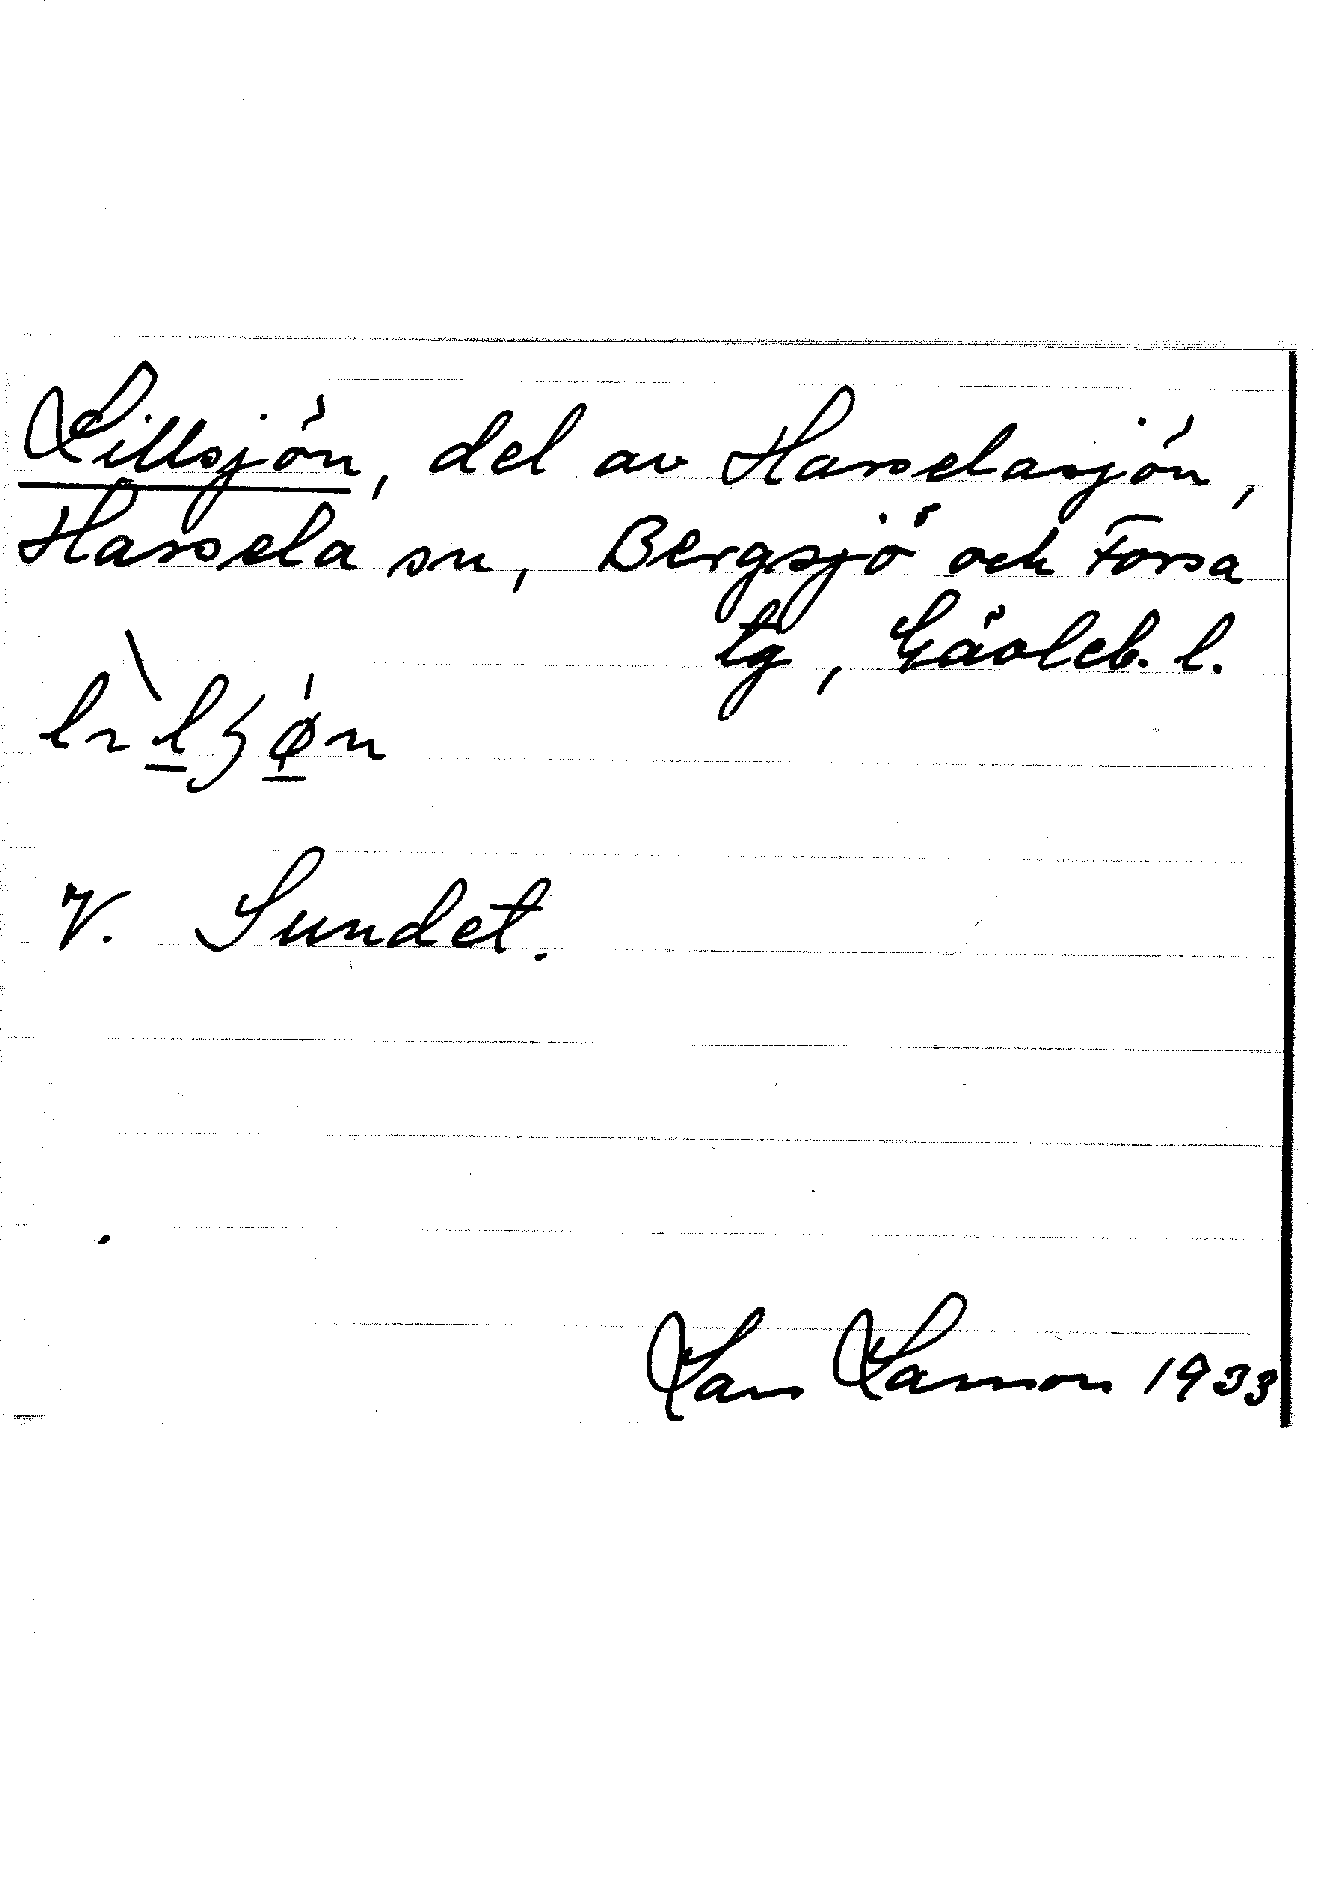 Lillsjön, del av Hasselasjön,
Hassela sn, Bergsjö och Forsa
tg, Gävleb. l.
V. Sundet.
Lars Larsson 1933